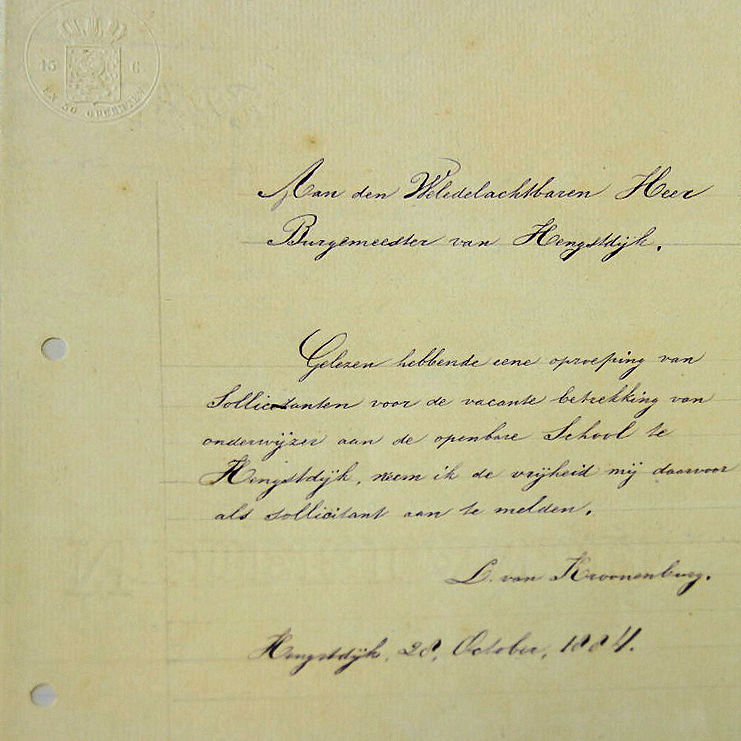 Aan den Weledelachtbaren Heer
Burgemeester van Hengstdijk.
Gelezen hebbende eene oproeping van
Sollicitanten voor de vacante betrekking van
onderwijzer aan de openbare School te
Hengstdijk, neem ik de vrijheid mij daarvoor
als sollicitant aan te melden.
L. van Kroonenburg.
Hengstdijk, 28, October, 1884.